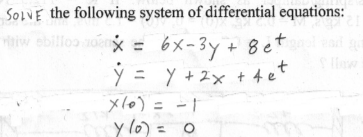 SOLVE the following system of differential equations:
ẋ = 6x-3y + 8e^t
ẏ = y + 2x + 4e^t
x(0) = -1
y(0) = 0